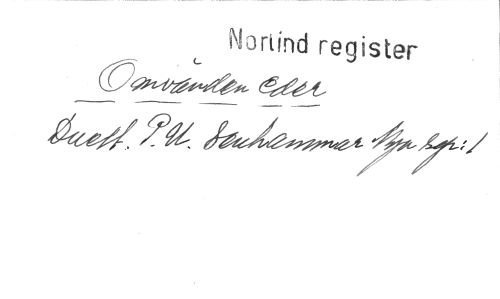 Norlind register
Omvänden Eder
Duett. P. U. Stenhammar Nya sgr: 1